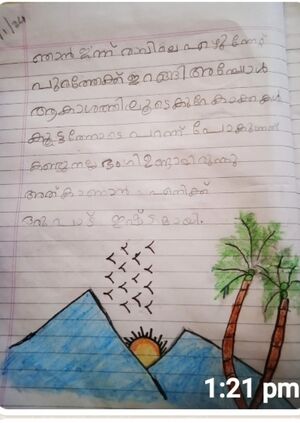 1/24
ഞാൻ ഇന്ന് രാവിലെ എഴുന്നേറ്റ്
പുറത്തേക്ക് ഇറങ്ങി അപ്പോൾ
ആകാശത്തിലൂടെ കുറെ കാക്കകൾ
കൂട്ടത്തോടെ പറന്ന് പോകുന്നത്
കണ്ടു നല്ല ഭംഗി ഉണ്ടായിരുന്നു
അത് കാണാൻ എനിക്ക്
ഒരുപാട് ഇഷ്ടമായി.
1:21 pm